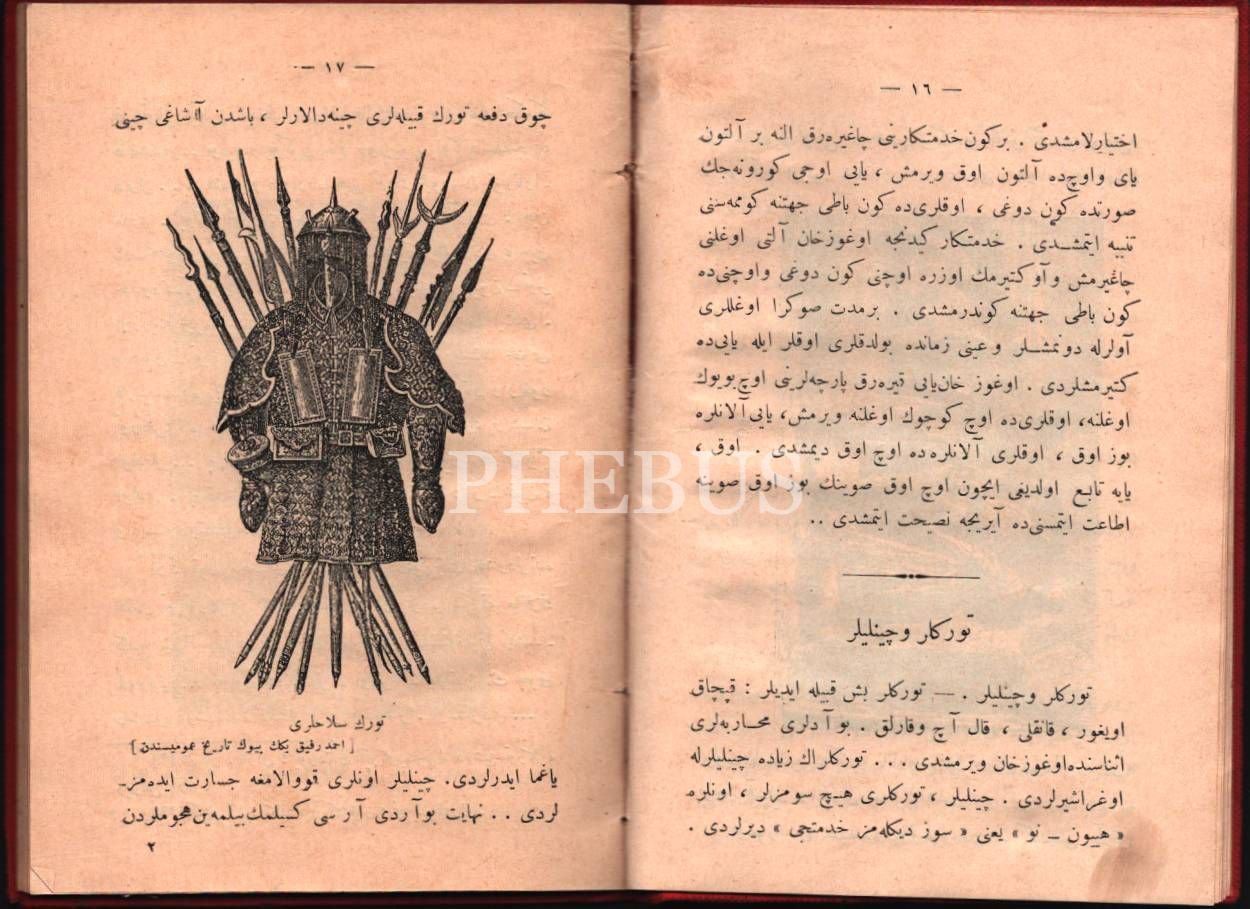 — ١٦ —
اختيارلامشدى . بركون خدمتكارينى چاغيره‌رق النه بر آلتون
ياى واوچ‌ده آلتون اوق ويرمش ، يايى اوجى كورونه‌جك
صورتده كون دوغى ، اوقلرى‌ده كون باطى جهتنه كوممه‌سنى
تنبيه ايتمشدى . خدمتكار كيدنجه اوغوزخان آلتى اوغلنى
چاغيرمش وآو كتيرمك اوزره اوچنى كون دوغى واوچنى‌ده
كون باطى جهتنه كوندرمشدى . برمدت صوكرا اوغللرى
آولرله دونمشلر وعينى زمانده بولدقلرى اوقلر ايله يايى‌ده
كتيرمشلردى . اوغوز خان‌يايى قيره‌رق پارچه‌لرينى اوچ‌بويوك
اوغلنه، اوقلرى‌ده اوچ كوچوك اوغلنه ويرمش، يايى آلانلره
بوز اوق ، اوقلرى آلانلره‌ده اوچ اوق ديمشدى . اوق ،
يايه تابع اولديغى ايچون اوچ اوق صوينك بوز اوق صوينه
اطاعت ايتمسنى‌ده آيريجه نصيحت ايتمشدى ..
توركلر وچينليلر
توركلر وچينليلر . — توركلر بش قبيله ايديلر : قپچاق
اويغور ، قانقلى ، قال آچ وقارلق . بوآدلرى محاربه‌لرى
اثناسنده‌اوغوزخان ويرمشدى . . . توركلراك زياده چينليلرله
اوغراشيرلردى . چينليلر ، توركلرى هيچ سومزلر ، اونلره
« هيون ـ نو » يعنى « سوز ديكله‌مز خدمتجى » ديرلردى .
— ١٧ —
چوق دفعه تورك قبيله‌لرى چينه‌دالارلر ، باشدن آاشاغى چينى
تورك سلاحلرى
[ احمد رفيق بكك بيوك تاريخ عموميسندن ]
ياغما ايدرلردى. چينليلر اونلرى قووالامغه جسارت ايده‌مز-
لردى . . نهايت بوآردى آرسى كسيلمك‌بيلمه‌ين‌هجوملردن
٢
PHEBUS